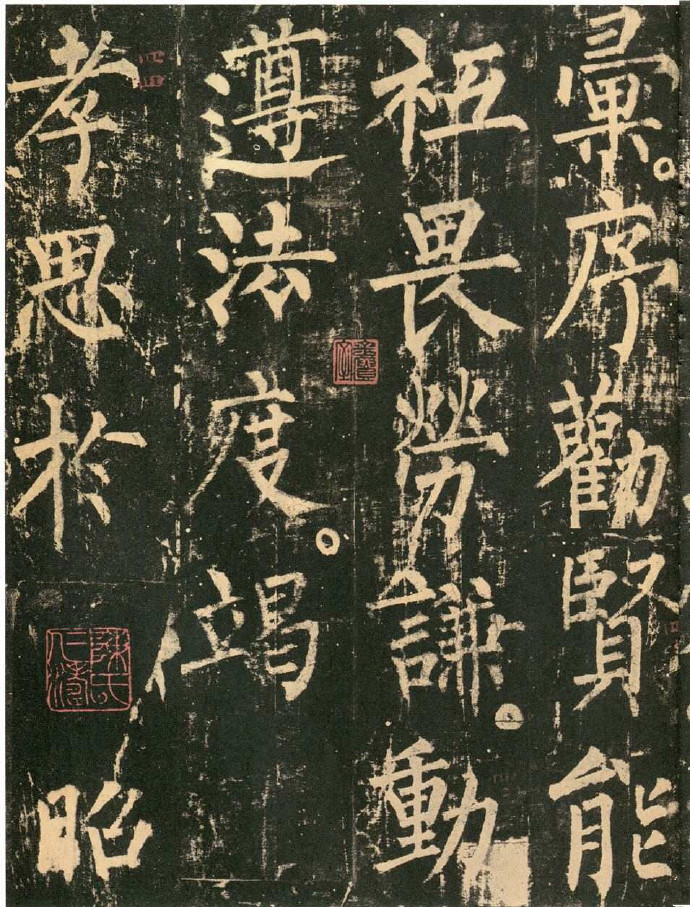 彙。序勸賢能
祗畏勞謙。動
遵法度。竭
孝思於昭
陳氏仁濤